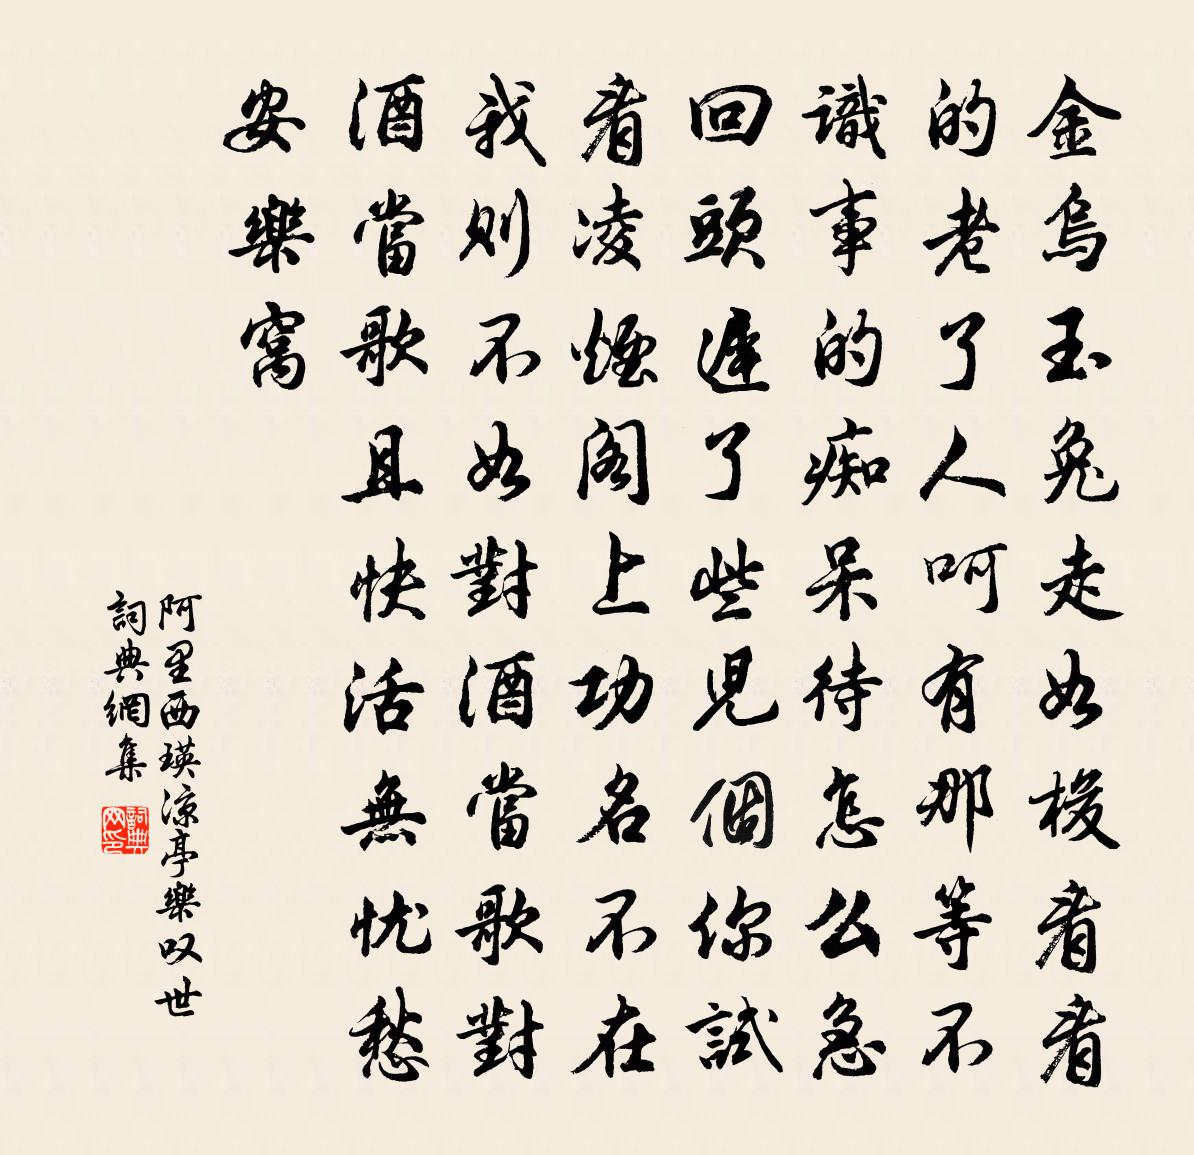 金烏玉兔走如梭看看
的老了人呵有那等不
識事的痴呆待怎么急
回頭遲了些兒個你試
看凌煙阁上功名不在
我则不如對酒當歌對
酒當歌且快活無忧愁
安樂窩
阿里西瑛凉亭樂叹世
詞典網集
詞典